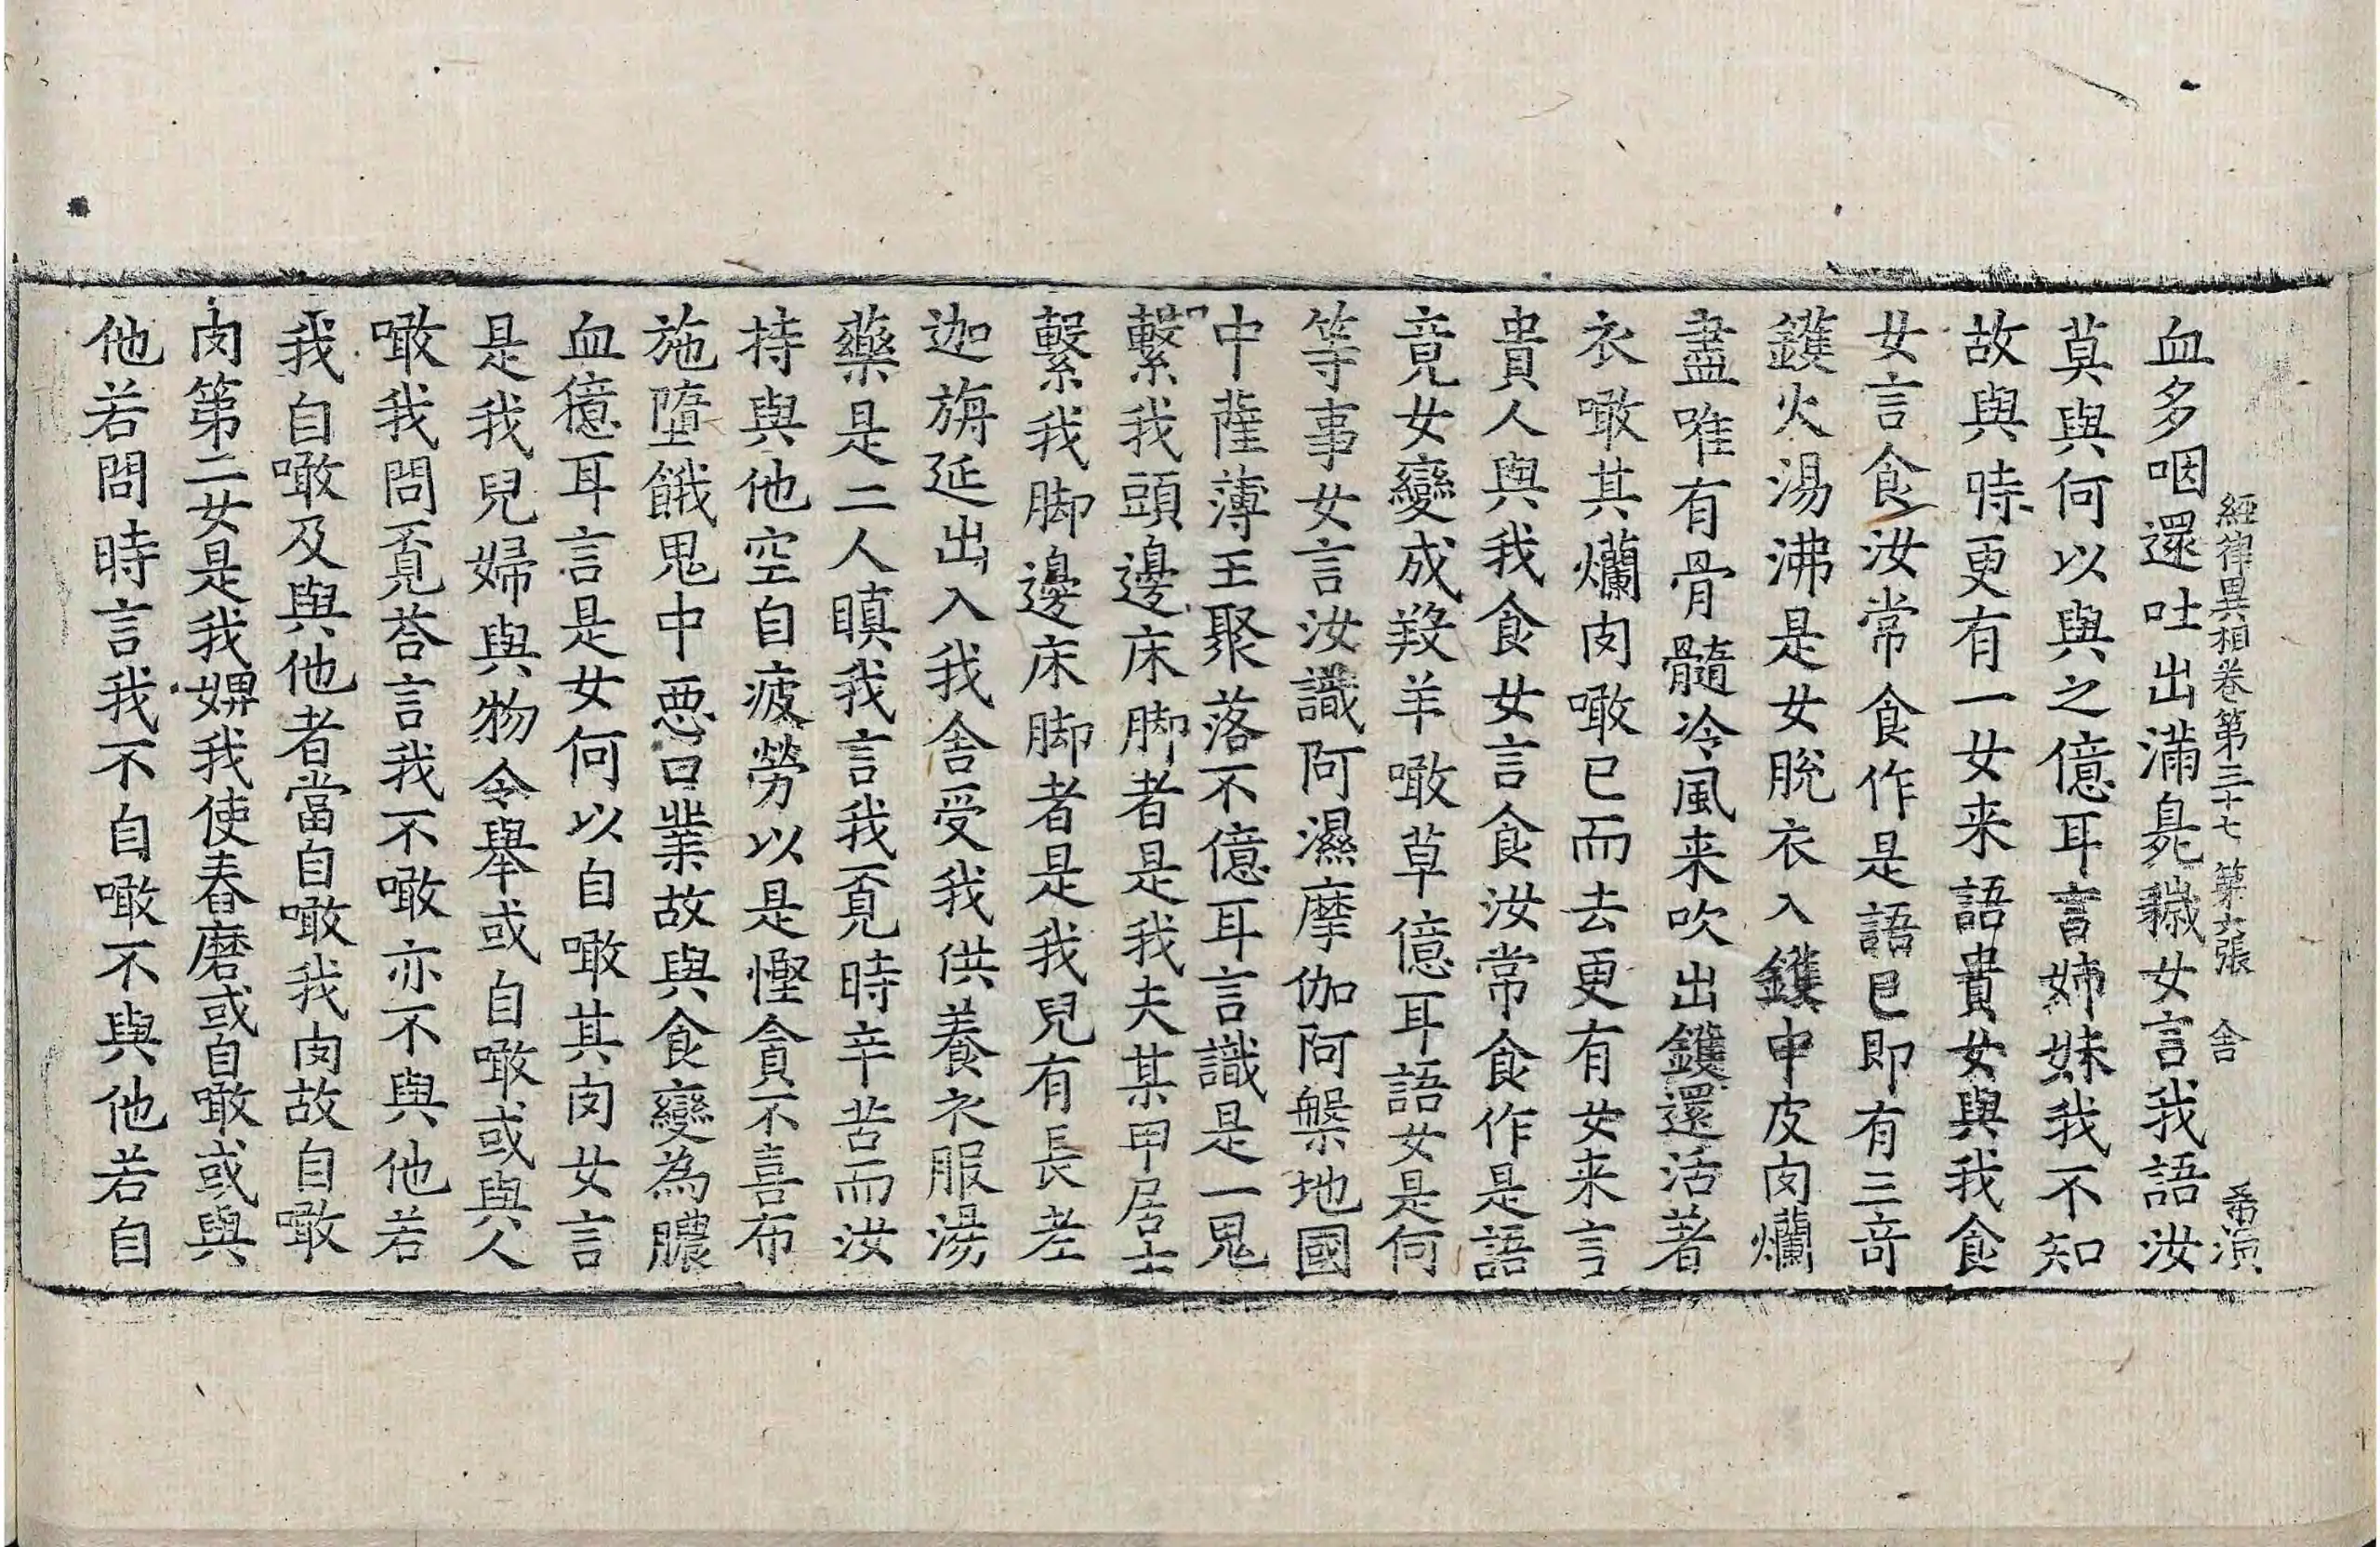 經律異相卷第三十七 第六張 舍 希演
血多咽還吐出滿臰穢女言我語汝
莫與何以與之億耳言姉妹我不知
故與時更有一女来語貴女與我食
女言食汝常食作是語已即有三奇
鑊火湯沸是女脫衣入鑊中皮肉爛
盡唯有骨髓冷風来吹出鑊還活著
衣噉其爛肉噉已而去更有女来言
貴人與我食女言食汝常食作是語
竟女變成羖羊噉草億耳語女是何
等事女言汝識阿濕摩伽阿槃地國
中薩薄王聚落不億耳言識是一鬼
繫我頭邊床脚者是我夫某甲居士
繫我脚邊床脚者是我兒有長老
迦旃延出入我舍受我供養衣服湯
藥是二人瞋我言我覔時辛苦而汝
持與他空自疲勞以是慳貪不喜布
施墮餓鬼中悪口業故與食變為膿
血億耳言是女何以自噉其肉女言
是我兒婦與物令舉或自噉或與人
噉我問覔荅言我不噉亦不與他若
我自噉及與他者當自噉我肉故自噉
肉第二女是我婢我使舂磨或自噉或與
他若問時言我不自噉不與他若自